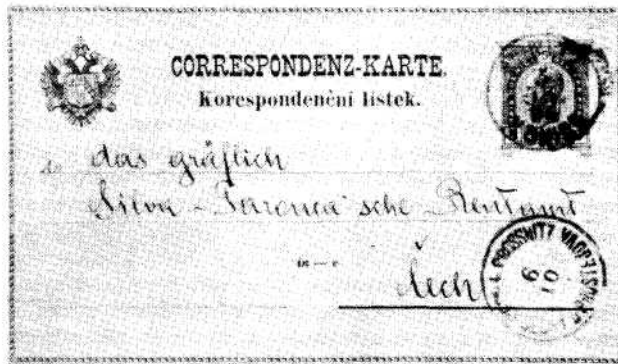 CORRESPONDENZ-KARTE.
Korespondenční lístek.
das gräflich
Silva-Tarouca'sche Rentamt
in — v
Čech
PROSSNITZ